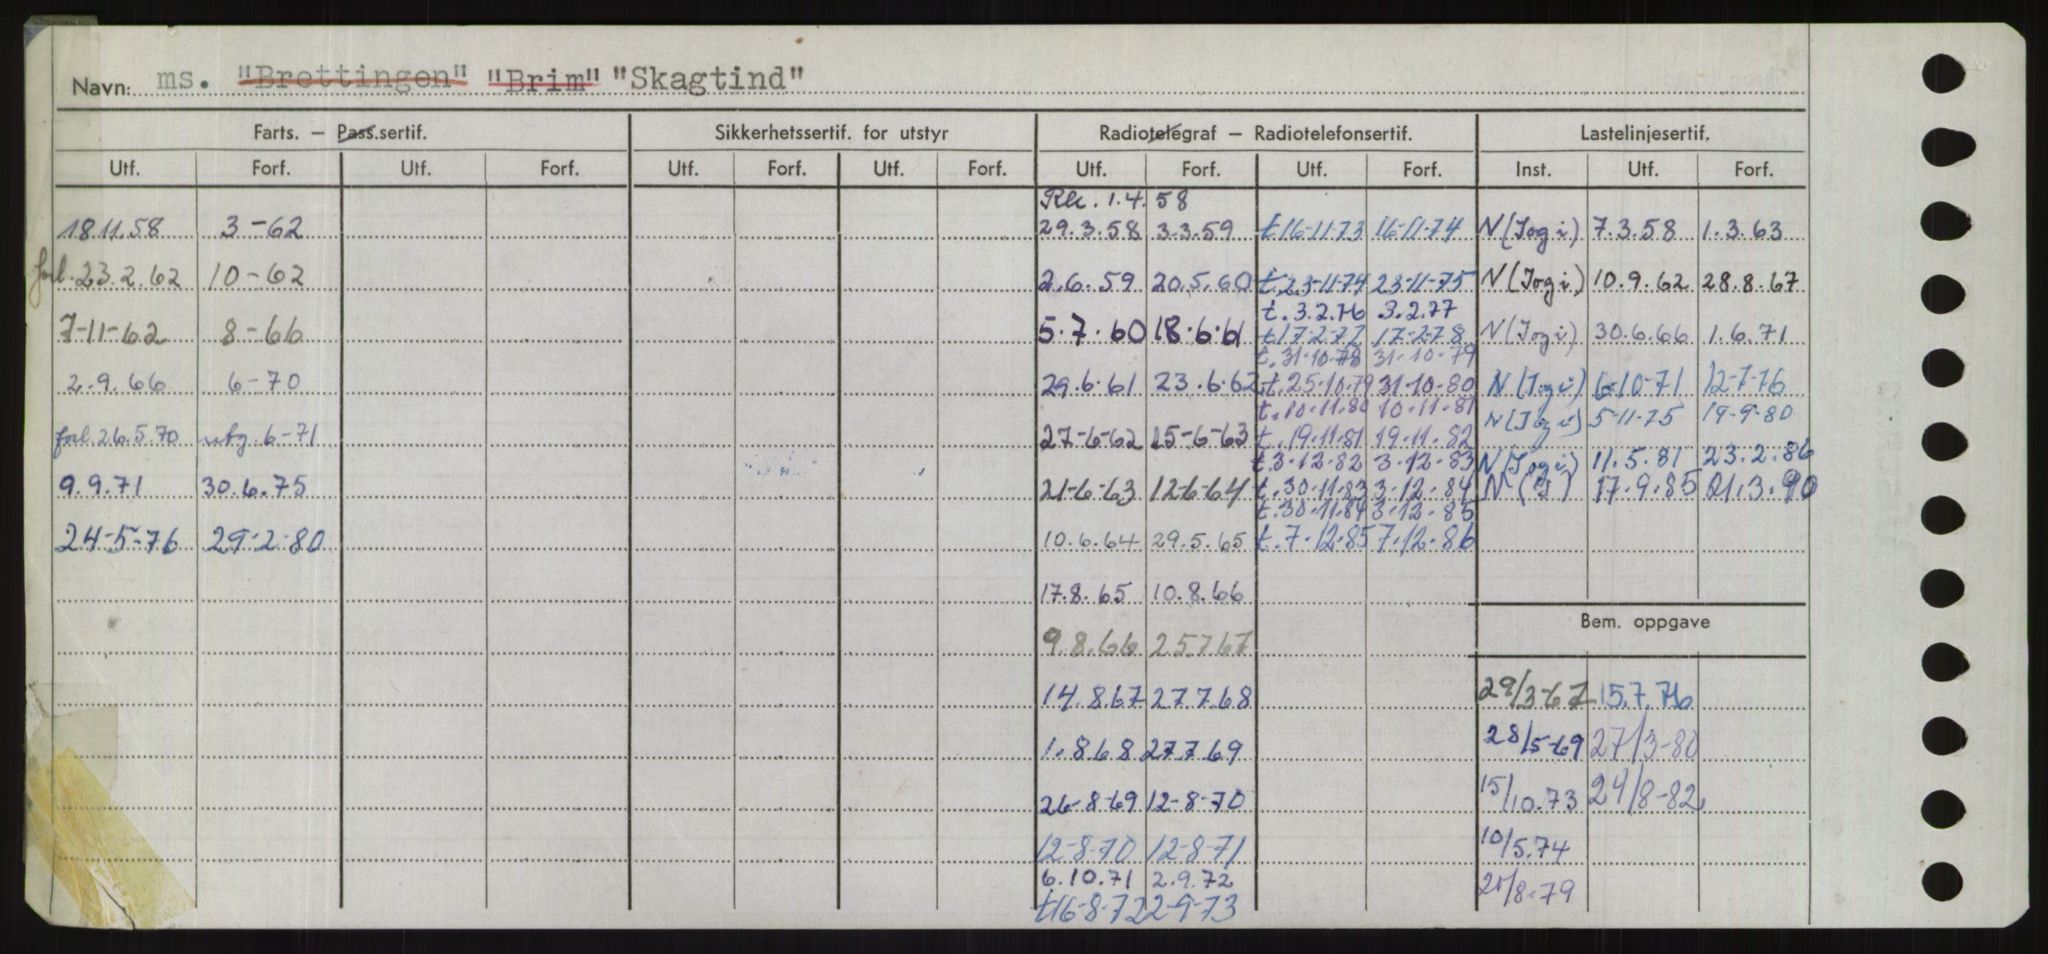 Navn: ms. "Brettingen" "Brim" "Skagtind"
Farts. — Pass.sertif. Sikkerhetssertif. for utstyr Radiotelegraf — Radiotelefonsertif. Lastelinjesertif.
Utf. Forf. Utf. Forf. Utf. Forf. Utf. Forf. Utf. Forf. Utf. Forf. Inst. Utf. Forf.
1.4.58
18.11.58 3-62 29.3.58 3.3.59 t 16-11-73 16-11-74 N (Jogi) 7.3.58 1.3.63
forl. 23.2.62 10-62 2.6.59 20.5.60 t. 23-11-74 23-11-75 N (Jogi) 10.9.62 28.8.67
t. 3.2.76 3.2.77
7-11-62 8-66 5.7.60 18.6.61 t 17-2-77 17-2-78 N (Jogi) 30.6.66 1.6.71
t. 31-10-78 31-10-79
2.9.66 6-70 29.6.61 23.6.62 t. 25-10-79 31-10-80 N (Jogi) 6-10-71 12-7-76
t. 10-11-80 10-11-81 N (Jogi) 5-11-75 19-9-80
forl. 26.5.70 utg. 6-71 27-6-62 15-6-63 t. 19.11.81 19.11.82
t. 3-12-82 3-12-83 N (Jogi) 11.5.81 23.2.86
9.9.71 30.6.75 21-6-63 12-6-64 t. 30-11-83 3-12-84 N (J) 17.9.85 21.3.90
t. 30-11-84 3-12-85
24-5-76 29-2-80 10.6.64 29.5.65 t. 7-12-85 7-12-86
17.8.65 10.8.66
Bem. oppgave
9.8.66 25767
14.8.67 27768 29/3-67 15.7.76
1.868 27769 28/5-69 27/3-80
26-8-69 12-8-70 15/10.73 24/8-82
12-8-70 12-8-71 10/5.74
6.10.71 2.9.72
21/8-79
t 16-8-72 2-9-73